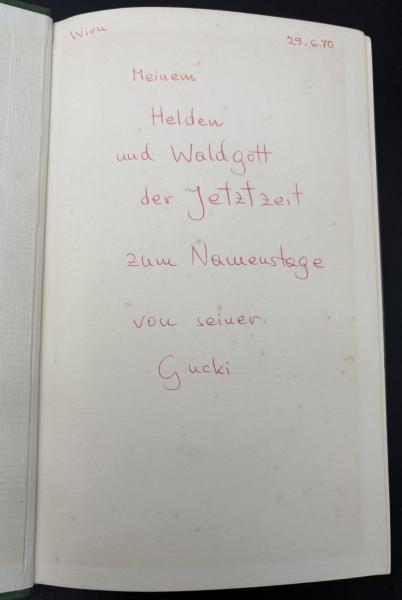 Wien
29.6.70
Meinem
Helden
und Waldgott
der Jetztzeit
zum Namenstage
von seiner
Gucki